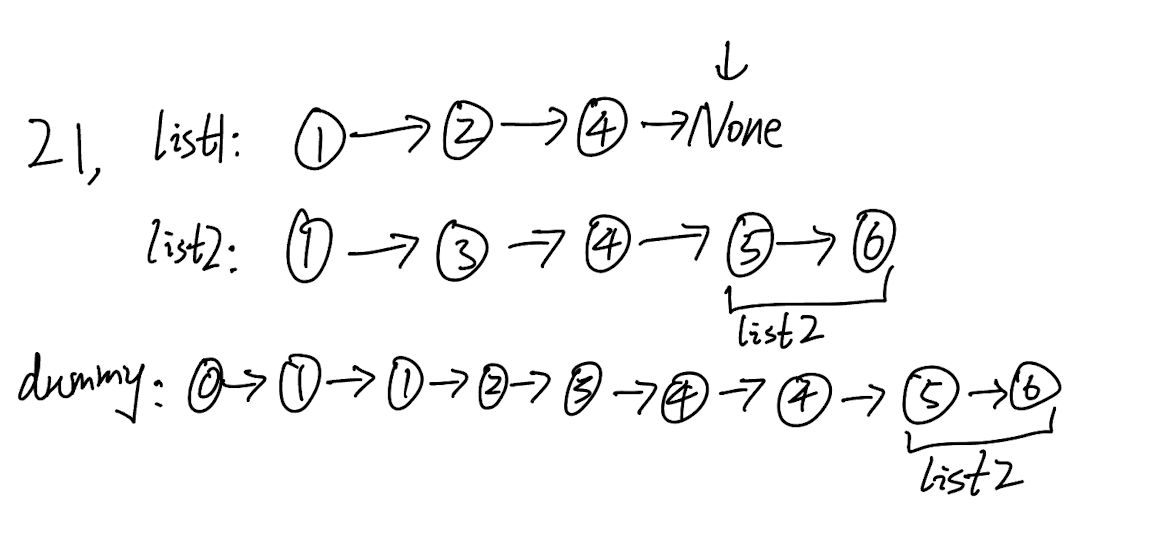 ↓
21, list1: ① → ② → ④ → None
list2: ① → ③ → ④ → ⑤ → ⑥
list2
dummy: ⓪ → ① → ① → ② → ③ → ④ → ④ → ⑤ → ⑥
list2